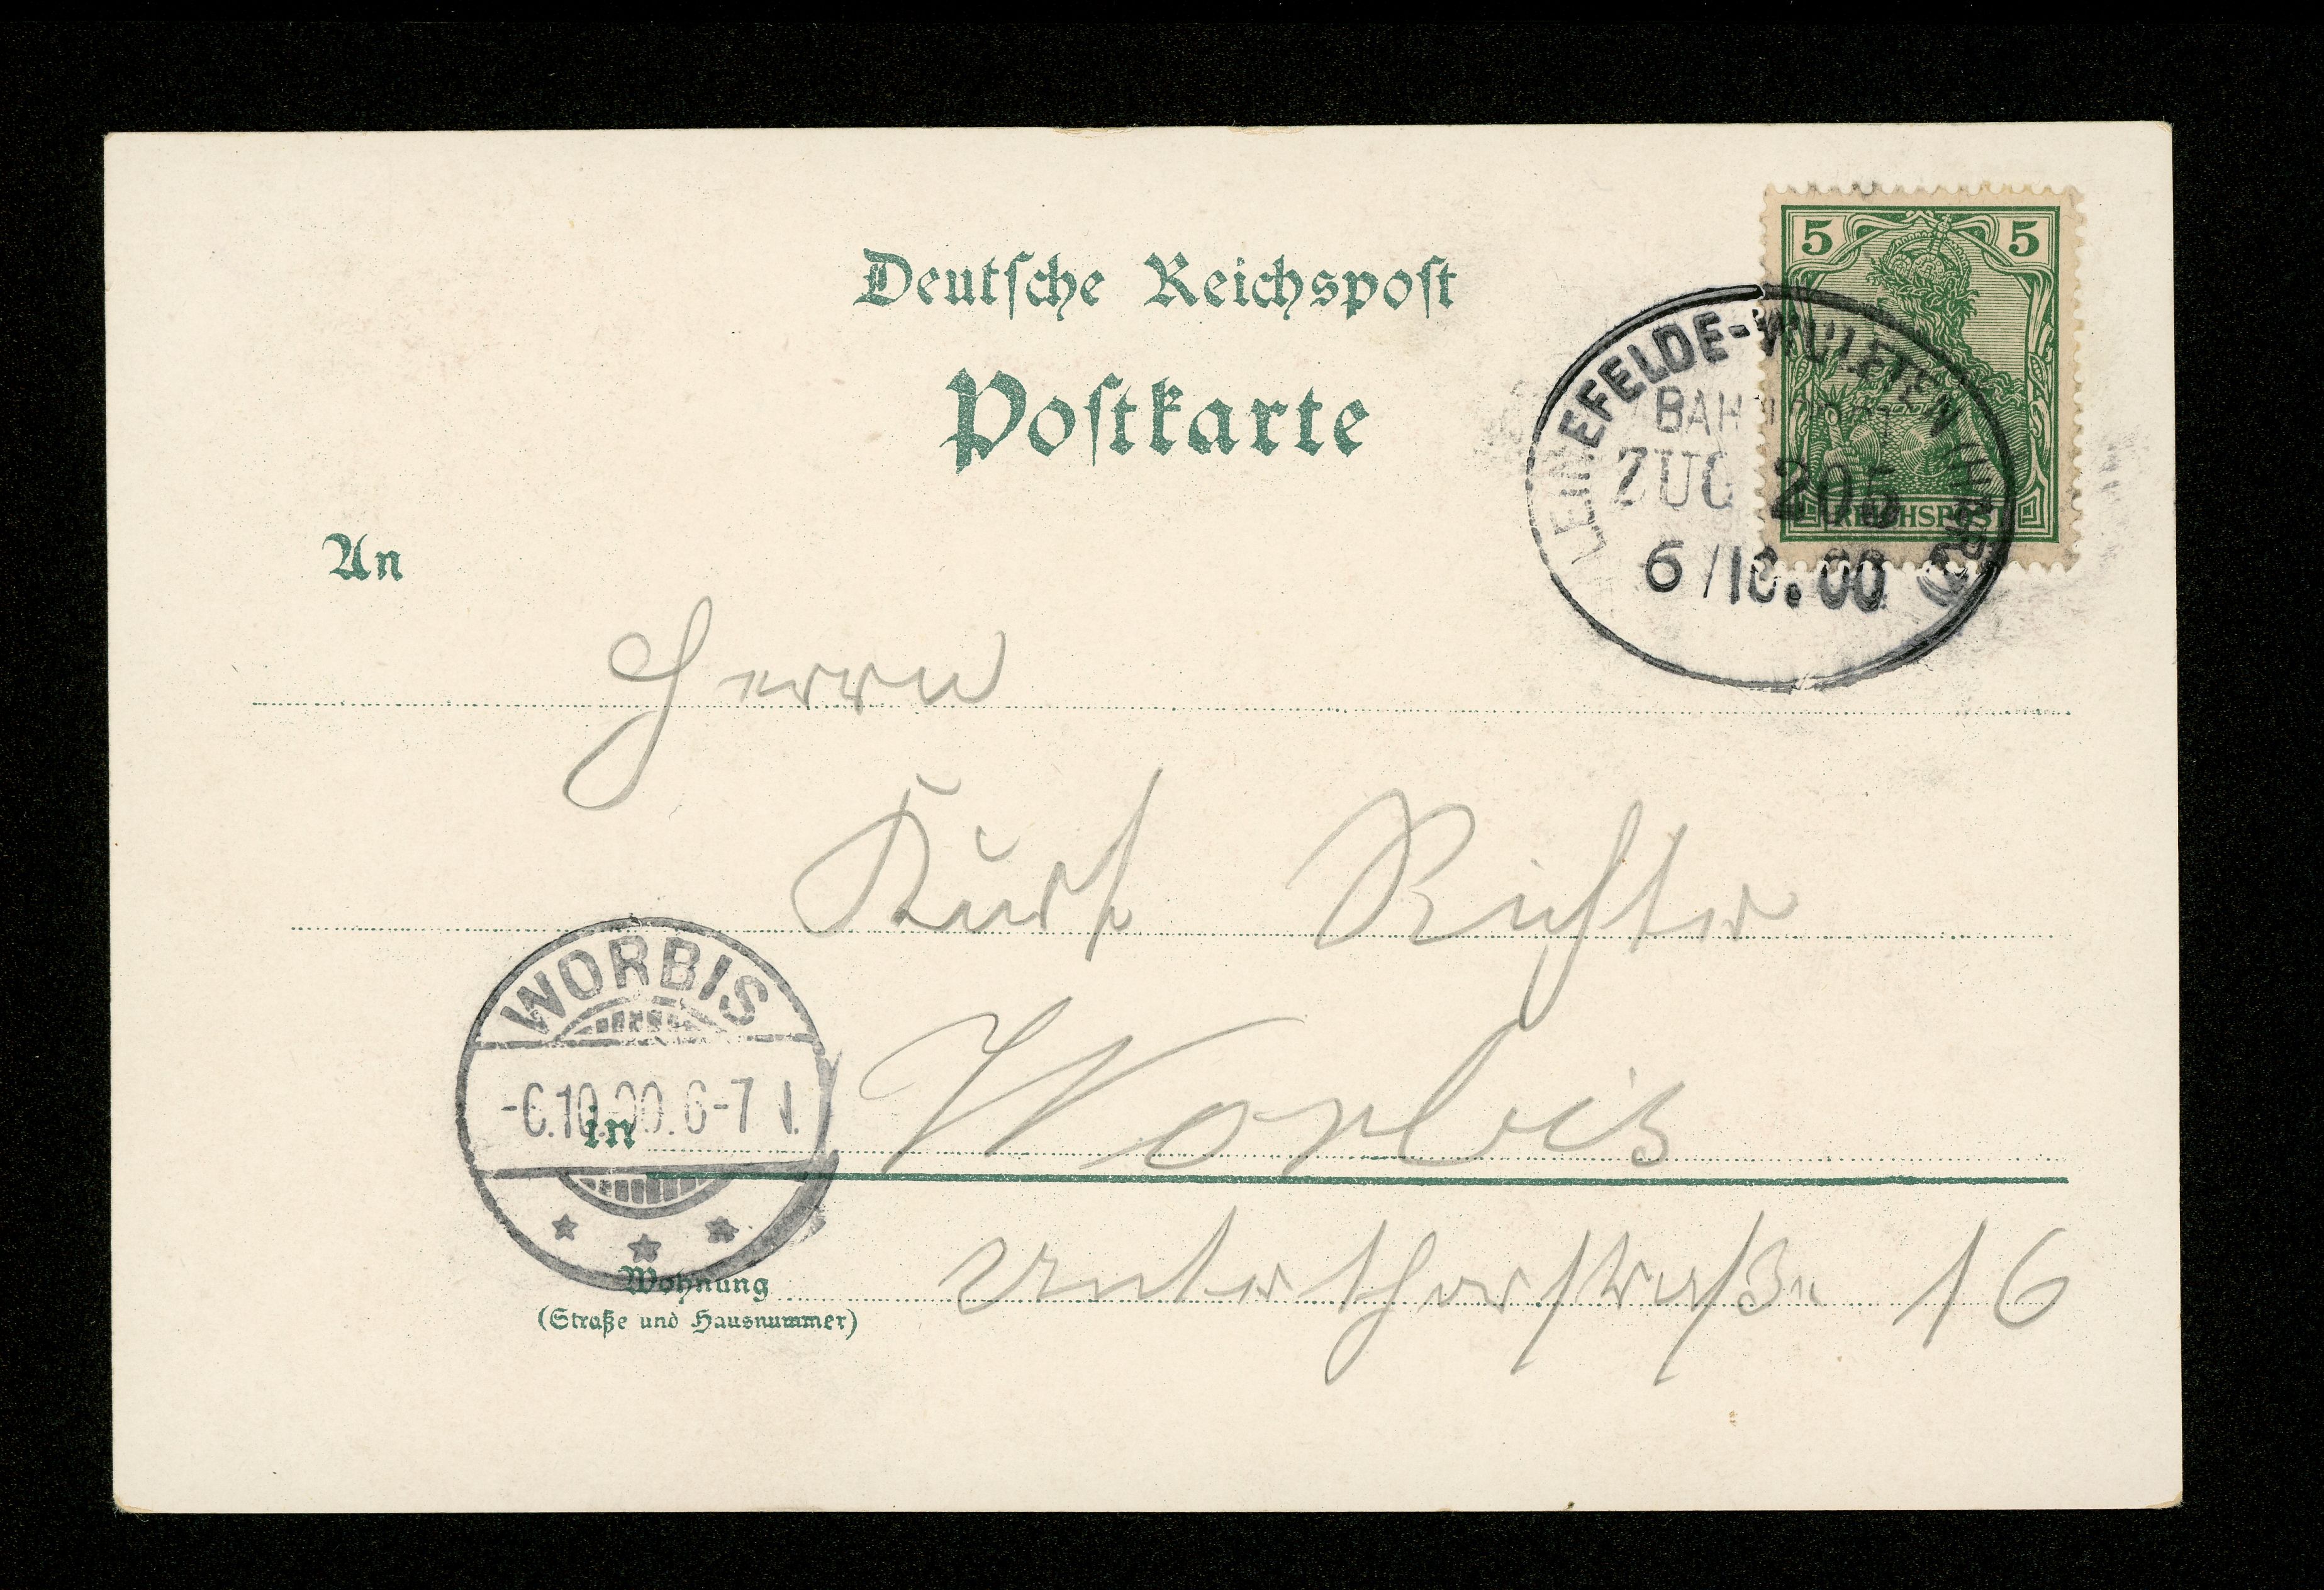 Deutsche Reichspost
Postkarte
5 5
REICHSPOST
LEINEFELDE-WULFTEN (HARZ)
BAHNPOST
ZUG 205
6/10.00
An
Herrn
Kurt Richter
WORBIS
-6.10.00.6-7
in Worbis
Wohnung Unterthorstraße 16
(Straße und Hausnummer)